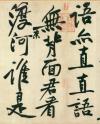 語直直語
無背面君看
渡河誰是